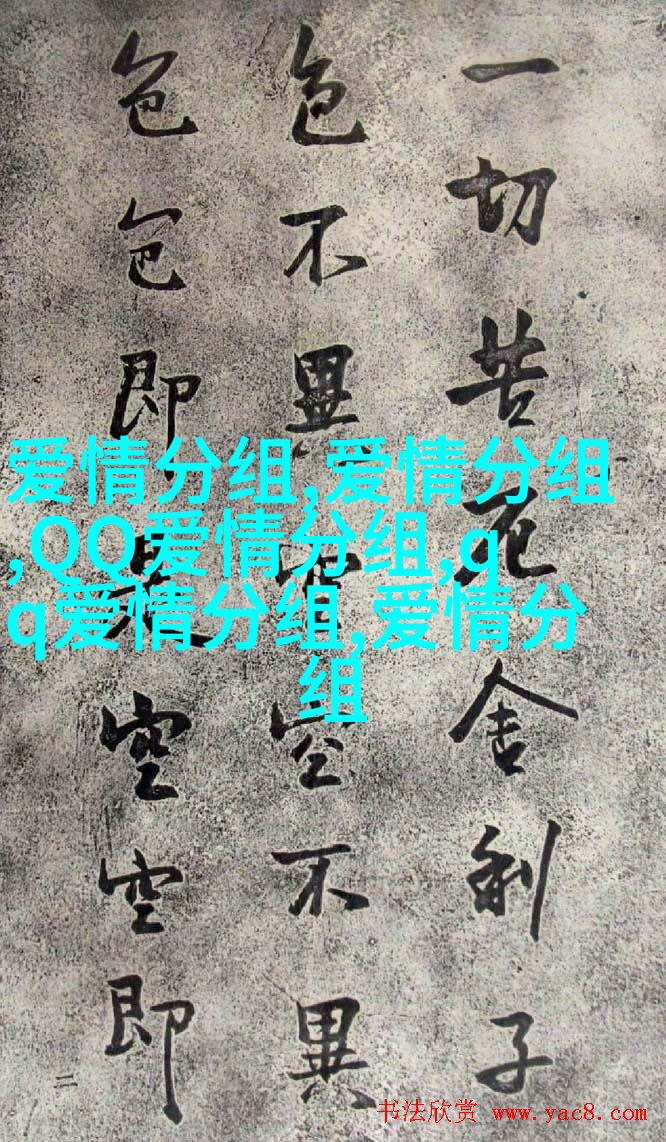 一切苦厄舍利子
色不異空不異
色色即空空即
二
爱情分组,爱情分组
,QQ爱情分组,q
q爱情分组,爱情分
组
书法欣赏 www.yac8.com